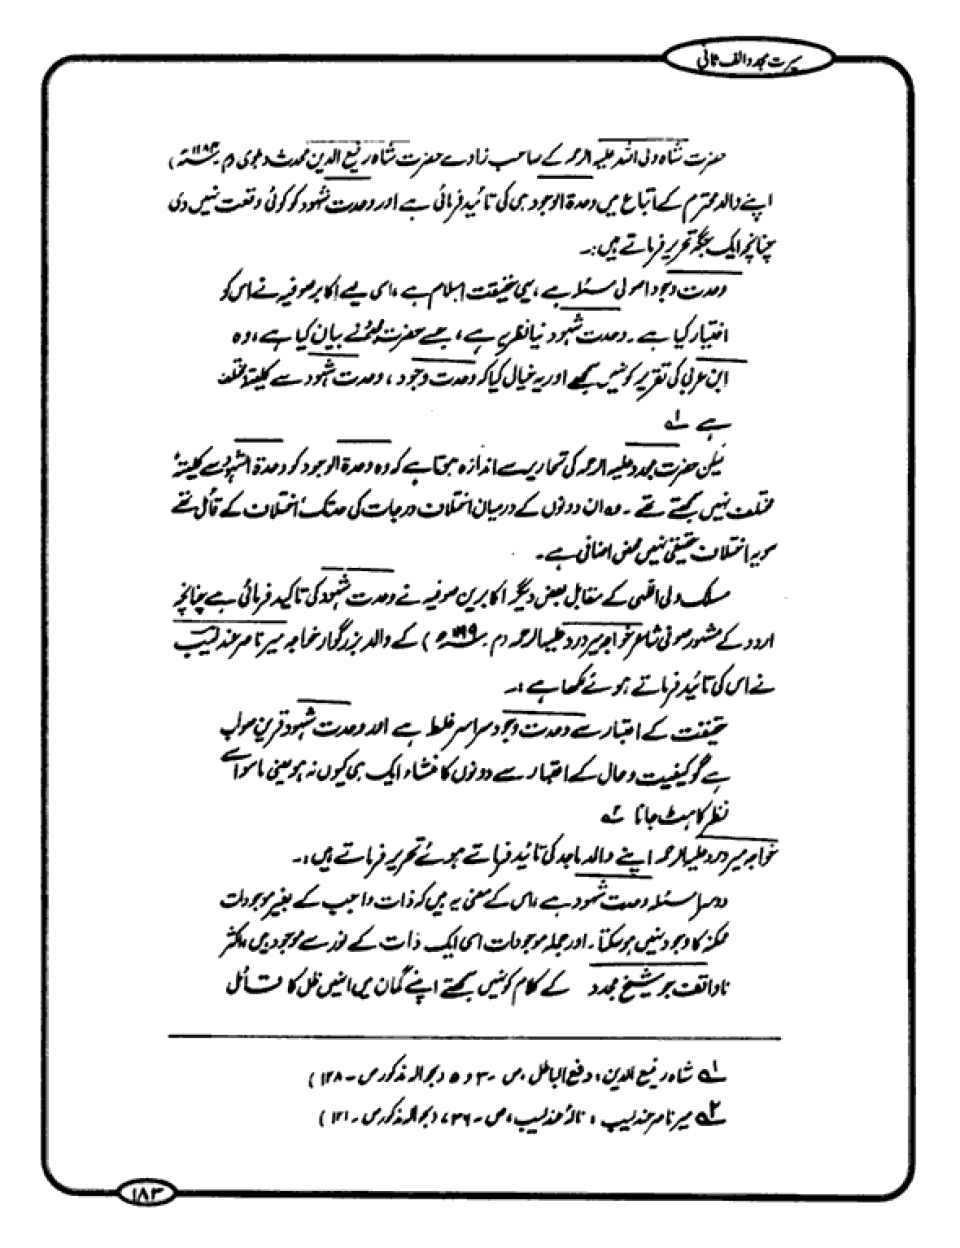 سیرت مجدد الف ثانی
حضرت شاہ ولی اللہ علیہ الرحمہ کے صاحب زادے حضرت شاہ رفیع الدین محدث دہلوی (م
اپنے والد محترم کے اتباع میں وحدۃ الوجود ہی کی تائید فرمائی ہے اور وحدت شہود کو کوئی وقعت نہیں دی
چنانچہ ایک جگہ تحریر فرماتے ہیں:۔
وحدت وجود اصولی مسئلہ ہے، یہی حقیقت اسلام ہے، اسی لیے اکابر صوفیہ نے اس کو
اختیار کیا ہے۔ وحدت شہود نیا نظریہ ہے، جسے حضرت مجدد نے بیان کیا ہے، وہ
ابن عربی کی تقریر کو نہیں سمجھے اور یہ خیال کیا کہ وحدت وجود، وحدت شہود سے کلیتہً مختلف
ہے ۱؎
لیکن حضرت مجدد علیہ الرحمہ کی تحاریر سے اندازہ ہوتا ہے کہ وہ وحدۃ الوجود کو وحدۃ الشہود سے کلیتہً
مختلف نہیں سمجھتے تھے۔ وہ ان دونوں کے درمیان اختلاف درجات کی حد تک اختلاف کے قائل تھے
سو یہ اختلاف حقیقی نہیں محض اضافی ہے۔
مسلک ولی اللہی کے مقابل بعض دیگر اکابرین صوفیہ نے وحدت شہود کی تاکید فرمائی ہے چنانچہ
اردو کے مشہور صوفی شاعر خواجہ میر درد علیہ الرحمہ (م ۱۱۹۹ھ) کے والد بزرگوار خواجہ میر ناصر عندلیب
نے اس کی تائید فرماتے ہوئے لکھا ہے:۔
حقیقت کے اعتبار سے وحدت وجود سراسر غلط ہے اور وحدت شہود قرین صواب
ہے گو کیفیت و حال کے اعتبار سے دونوں کا منشاء ایک ہی کیوں نہ ہو یعنی ماسوا سے
نظر کا ہٹ جانا ۲؎
خواجہ میر درد علیہ الرحمہ اپنے والد ماجد کی تائید فرماتے ہوئے تحریر فرماتے ہیں:۔
دوسرا مسئلہ وحدت شہود ہے اس کے معنی یہ ہیں کہ ذات واجب کے بغیر موجودات
ممکنہ کا وجود نہیں ہو سکتا۔ اور جملہ موجودات اسی ایک ذات کے نور سے موجود ہیں، اکثر
ناواقف جو شیخ مجدد کے کلام کو نہیں سمجھتے اپنے گمان میں انہیں ظل کا قائل
۱؎ شاہ رفیع الدین: دفع الباطل، ص۔ ۳ و ۵ (بحوالہ مذکور ص۔ ۱۲۸)
۲؎ میر ناصر عندلیب: نالۂ عندلیب، ص۔ ۷۳۶، (بحوالہ مذکور ص۔ ۱۲۱)
۱۸۳